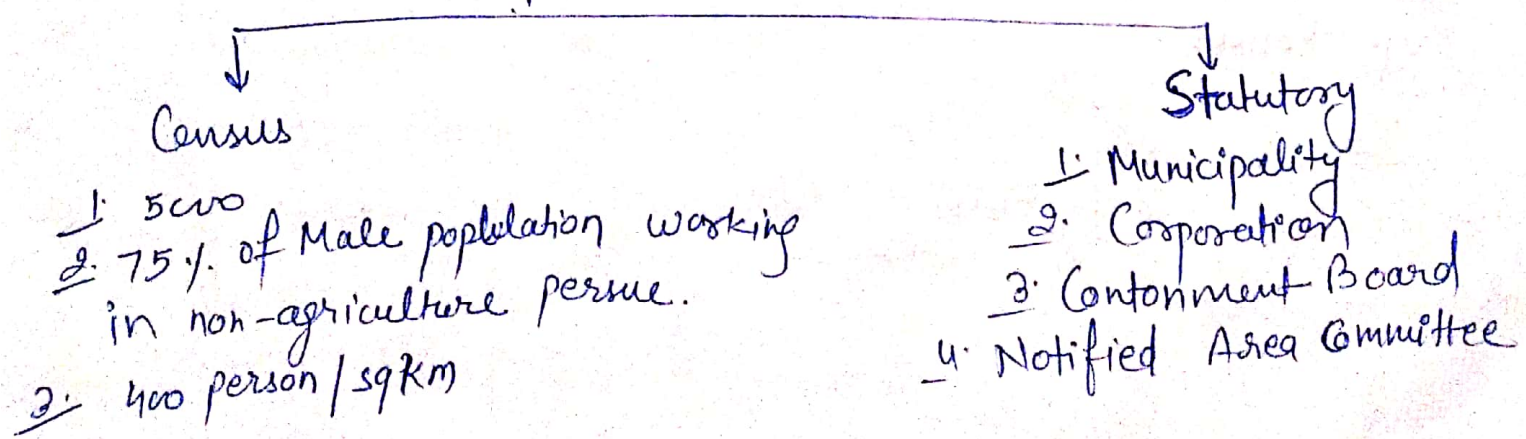 Census
1. 5000
2. 75% of Male poplulation working
in non-agriculture persue.
3. 400 person / sqkm
Statutory
1. Municipality
2. Corporation
3. Contonment Board
4. Notified Area Committee